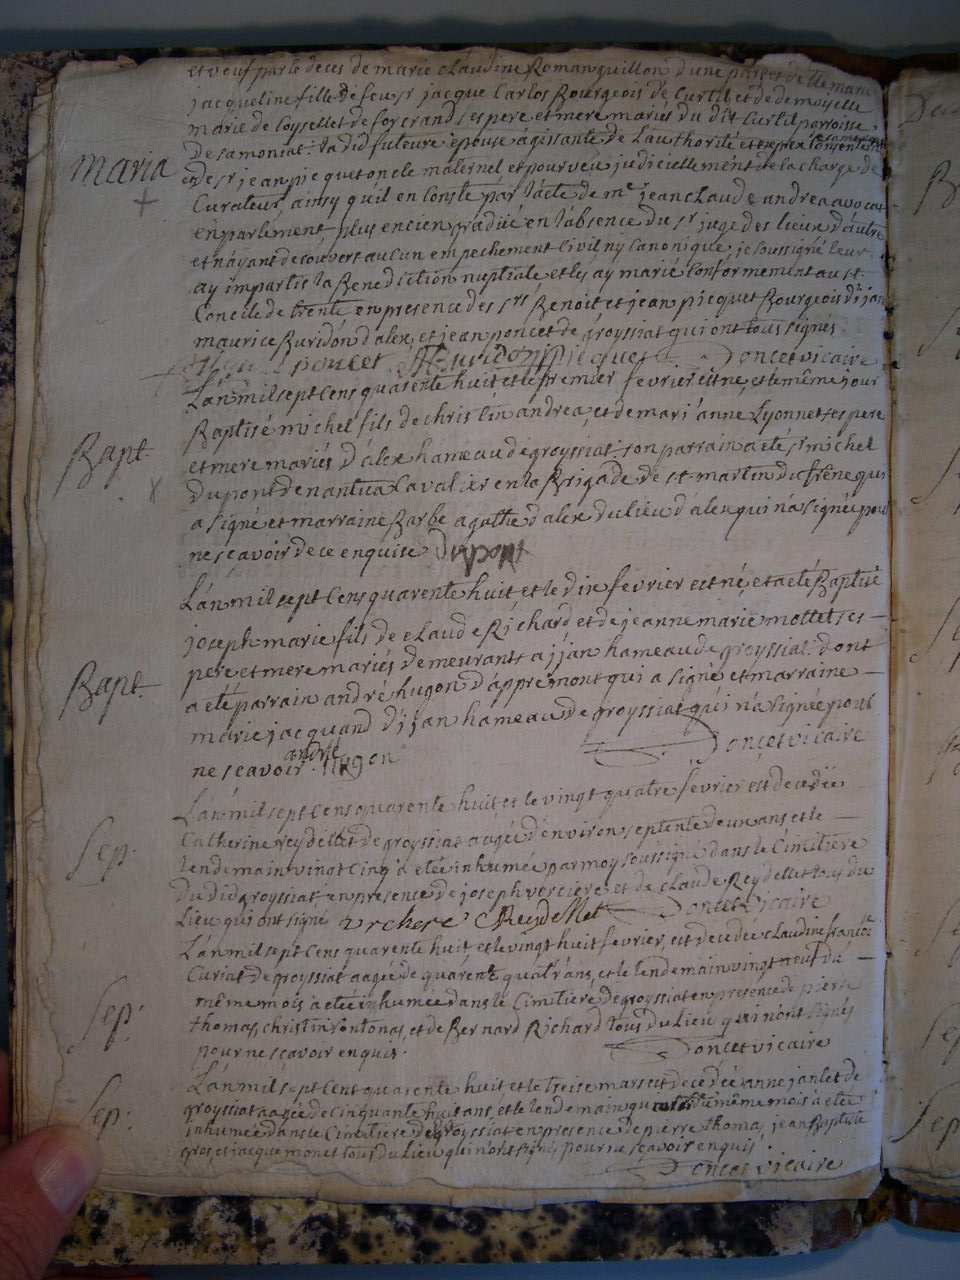 et veuf par le deces de marie claudine Romanguillon d'une part et delle marie
jacqueline fille de feu sr jacque Carlos Bourgeois de Curtil et de demoyselle
marie de Coysellet de ses pere et mere mariés du dit Curtil parroisse
de samoniat. la did futeure epouse agissante de L'authorité et
maria
de sr jean picquet oncle maternel et pourveu judiciellement de la charge de
Curateur, ainsy qu'il en Conste par l'acte de me jean claude andrea avocat
en parlement plus encien gradué en l'absence du sr juge des lieux d'autre
et n'ayant decouvert aucun empechement Civil ny Canonique, je soussigné leur
ay impartis la Benediction nuptiale et les ay marié Conformement au st.
Concile de trente en presence des srs Benoit et jean picquet Bourgeois d'ijan
maurice Buridon d'alex, et jean poncet de groyssiat qui ont tous signés
poncet Buridon picquet Poncet vicaire
L'an mil sept Cens quarente huit et le premier fevrier est né, et le même jour
Baptisé michel fils de christin andrea, et de mari'anne Lyonnet ses pere
Bapt.
et mere mariés d'alex hameau de groyssiat. son parrain a eté sr michel
dupont de nantua Cavalier en la Brigade de st martin du frêne qui
a signé et marraine Barbe agathe d'alex du lieu d'alex qui n'a signée pour
ne sçavoir de ce enquise Dupont
L'an mil sept Cens quarente huit et le dix fevrier est né, et a eté Baptisé
joseph marie fils de claude Richard et de jeanne marie mottet ses
Bapt.
pere et mere mariés demeurants a ijan hameau de groyssiat. dont
a eté parrain andré hugon d'appremont qui a signé et marraine
marie jacquand d'ijan hameau de groyssiat qui n'a signée pour
ne sçavoir. andré hugon Poncet vicaire
L'an mil sept Cens quarente huit et le vingt quatre fevrier est decedée
Sep.
Catherine reydellet de groyssiat aagée d'environ septente deux ans et le
lendemain vingt Cinq a etée inhumée par moy soussigné dans le Cimitiere
du did groyssiat en presence de joseph verciere et de claude Reydellet tous du
Lieu qui ont signé Reydellet Poncet vicaire
L'an mil sept Cens quarente huit et le vingt huit fevrier, est decedée claudine francoise
Curiat de groyssiat aagée de quarente quatr'ans, et le lendemain vingt neuf du
Sep.
même mois a etée inhumée dans le Cimitiere de groyssiat en presence de pierre
thomas, christin fontonas, et de Bernard Richard tous du Lieu qui n'ont signés
pour ne sçavoir enquis. Poncet vicaire
L'an mil sept Cent quarente huit et le treise mars est decedée anne janlet de
Sep.
groyssiat aagée de Cinquante huit ans, et le lendemain du même mois a etée
inhumée dans le Cimitiere de groyssiat en presence de pierre thomas, jean Baptiste
gros, et jacque monet tous du Lieu qui n'ont signés pour ne sçavoir enquis.
Poncet vicaire